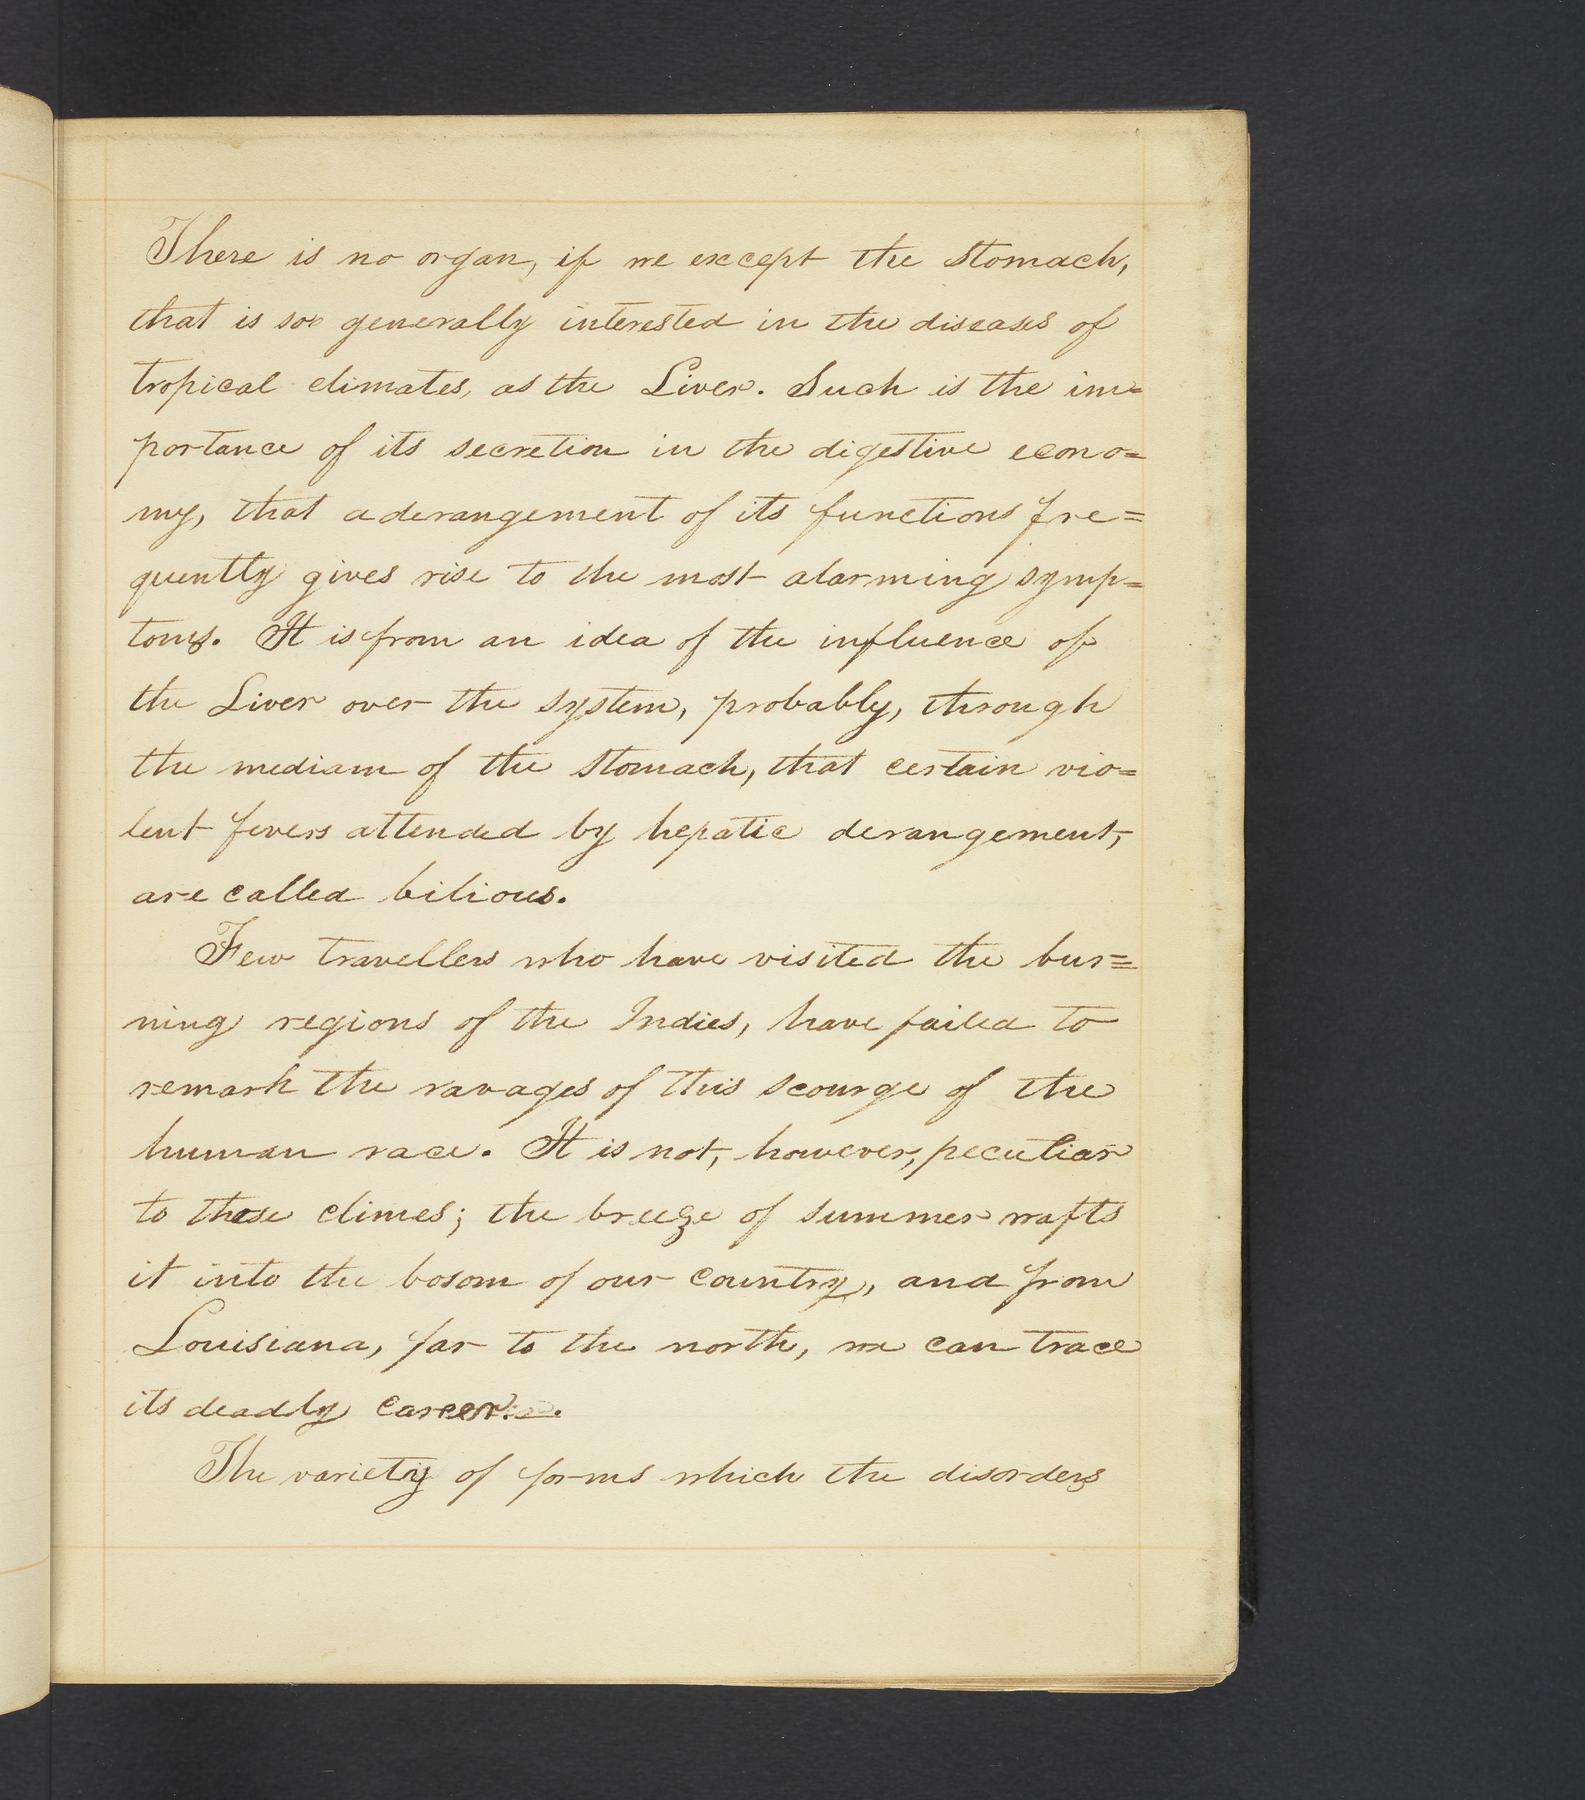 There is no organ, if we except the Stomach,
that is so generally interested in the diseases of
tropical climates, as the Liver. Such is the im=
portance of its secretion in the digestive econo=
my, that a derangement of its functions fre=
quently gives rise to the most alarming symp=
toms. It is from an idea of the influence of
the Liver over the system, probably, through
the mediam of the Stomach, that certain vio=
lent fevers attended by hepatic derangement,
are called bilious.
Few travellers who have visited the bur=
ning regions of the Indies, have failed to
remark the ravages of this scourge of the
human race. It is not, however, peculiar
to those climes; the breeze of summer wafts
it into the bosom of our country, and from
Louisiana, far to the north, we can trace
its deadly career.
The variety of forms which the disorders